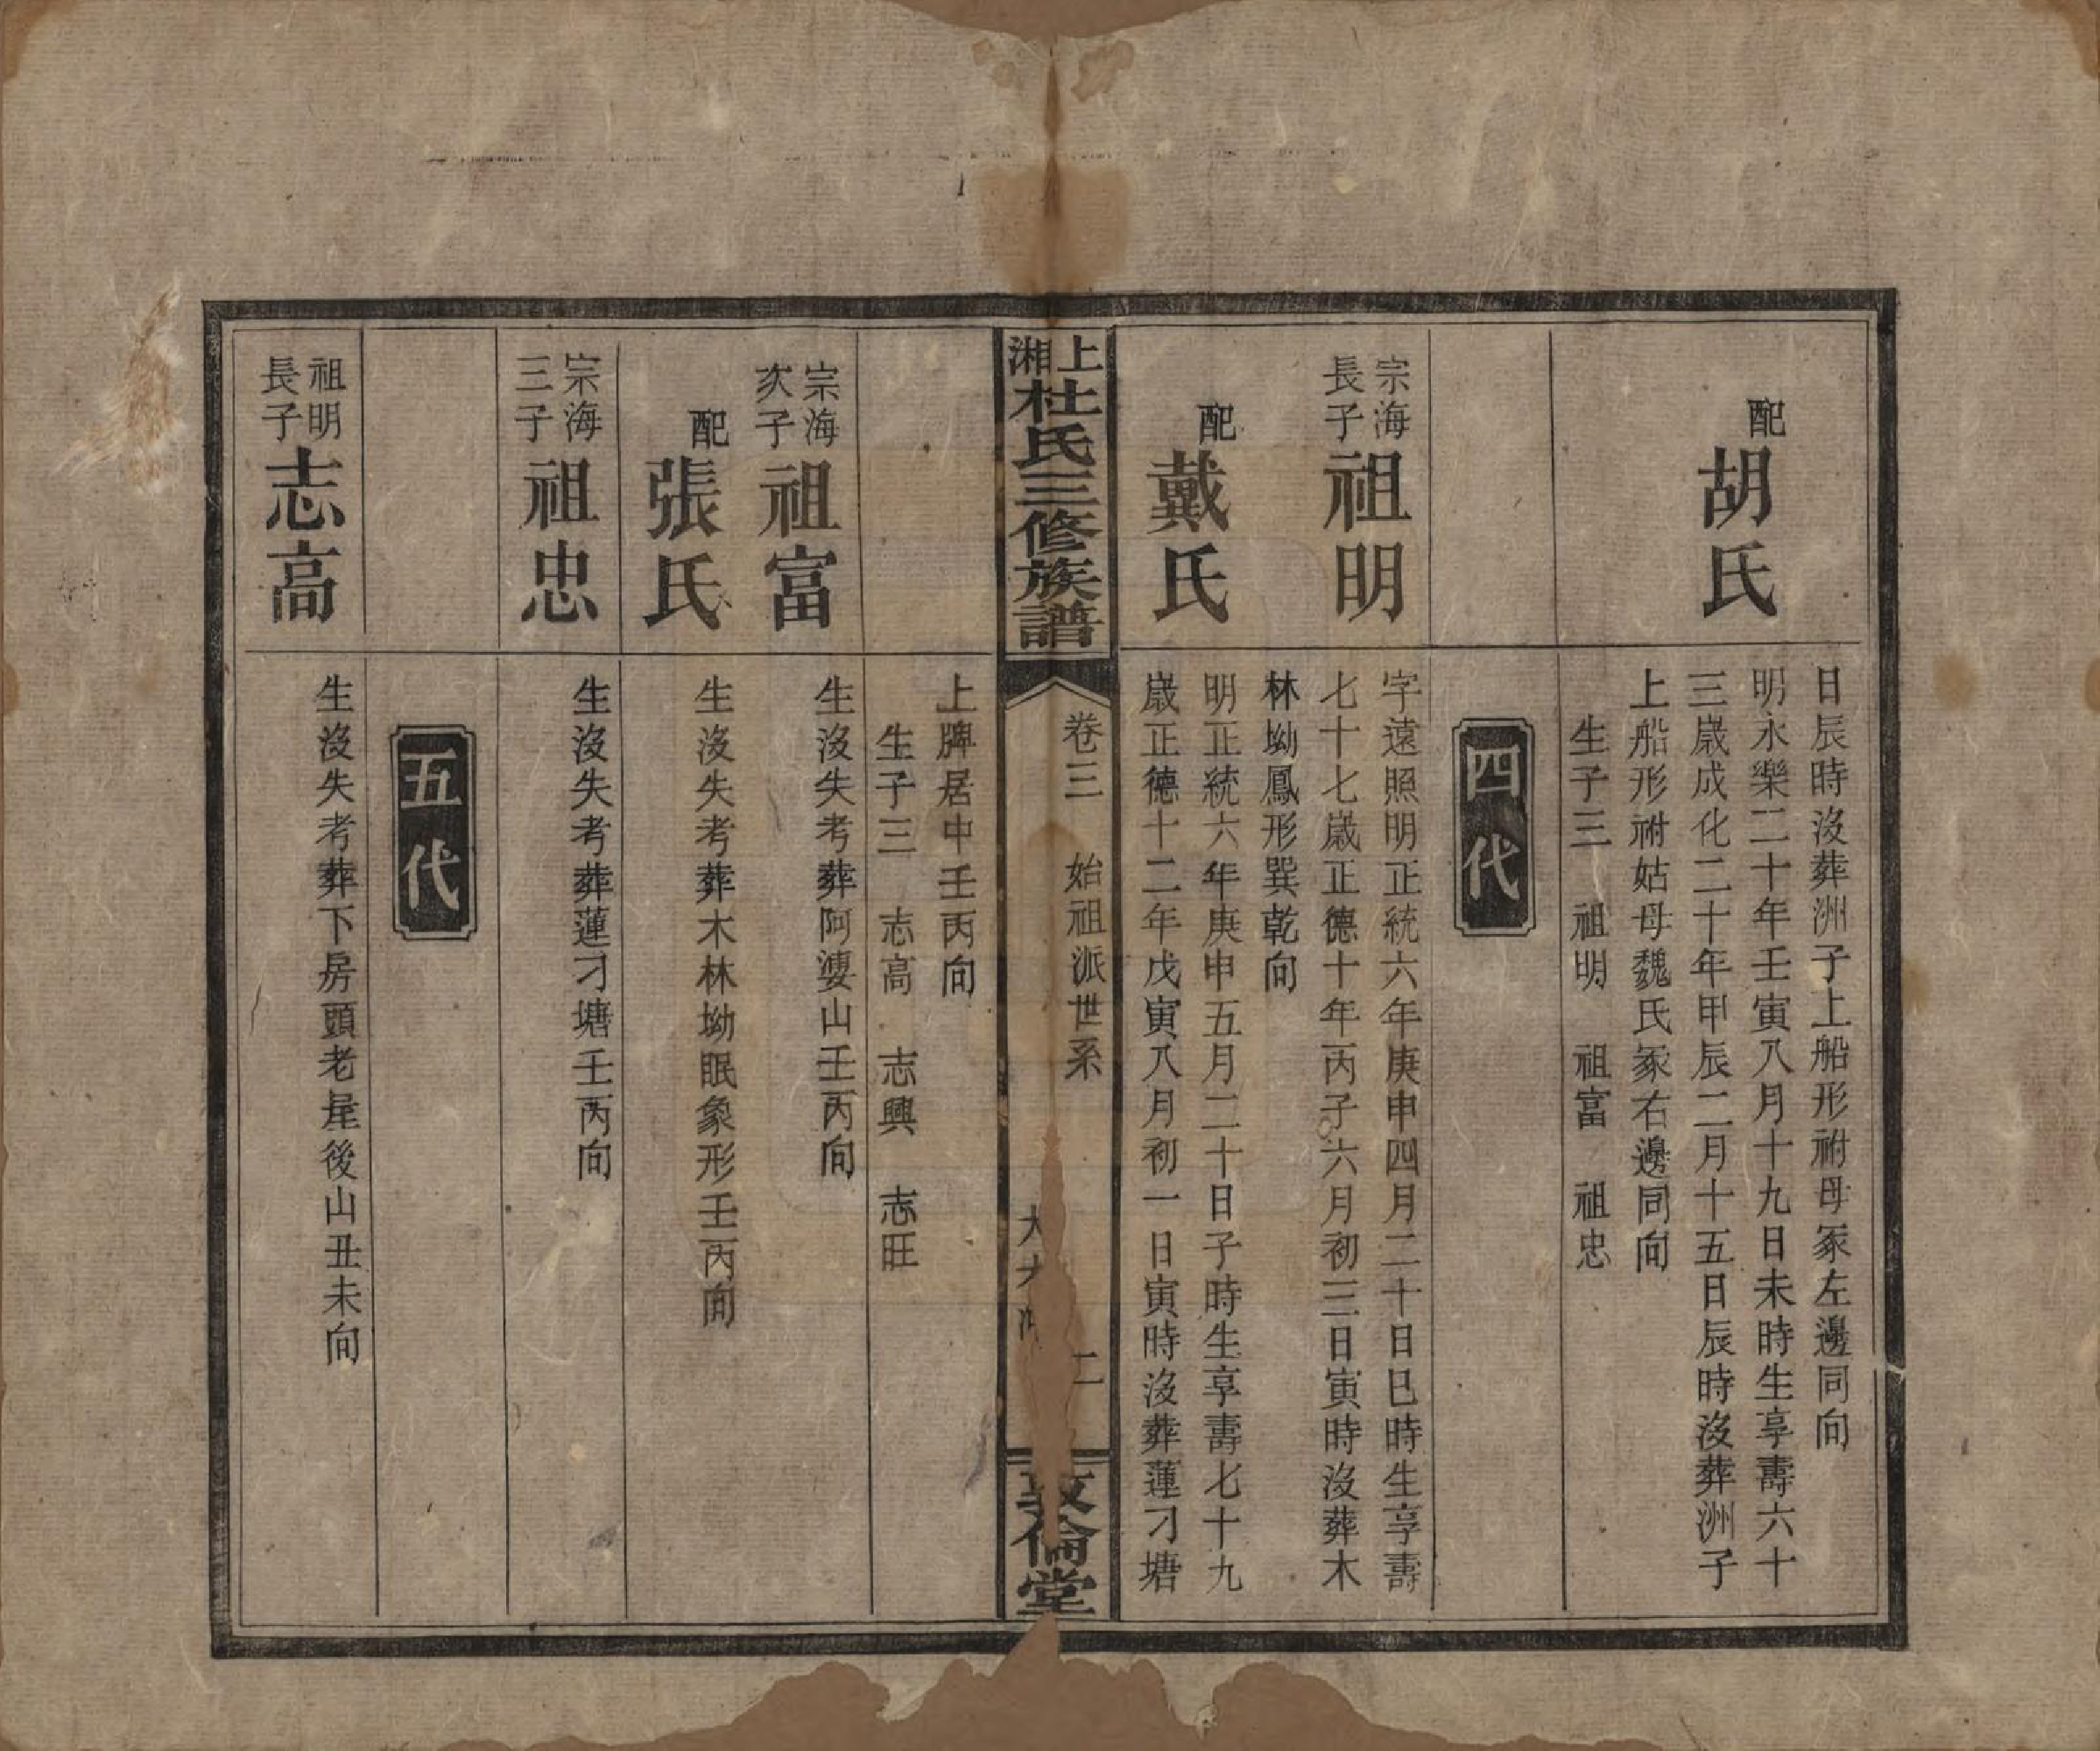 日辰時沒葬洲子上船形祔母冢左邊同向
配胡氏
明永樂二十年壬寅八月十九日未時生享壽六十
三歲成化二十年甲辰二月十五日辰時沒葬洲子
上船形祔姑母魏氏冢右邊同向
生子三 祖明 祖富 祖忠
四代
宗海長子祖明
字遠照明正統六年庚申四月二十日巳時生享壽
七十七歲正德十年丙子六月初三日寅時沒葬木
林坳鳳形巽乾向
配戴氏
明正統六年庚申五月二十日子時生享壽七十九
歲正德十二年戊寅八月初一日寅時沒葬蓮刁塘
上湘杜氏三修族譜
卷三 始祖派世系
二
大大
敦倫堂
上牌居中壬丙向
生子三 志高 志興 志旺
宗海次子祖富
生沒失考葬阿婆山壬丙向
配張氏
生沒失考葬木林坳眠象形壬丙向
宗海三子祖忠
生沒失考葬蓮刁塘壬丙向
五代
祖明長子志高
生沒失考葬下房頭老屋後山丑未向